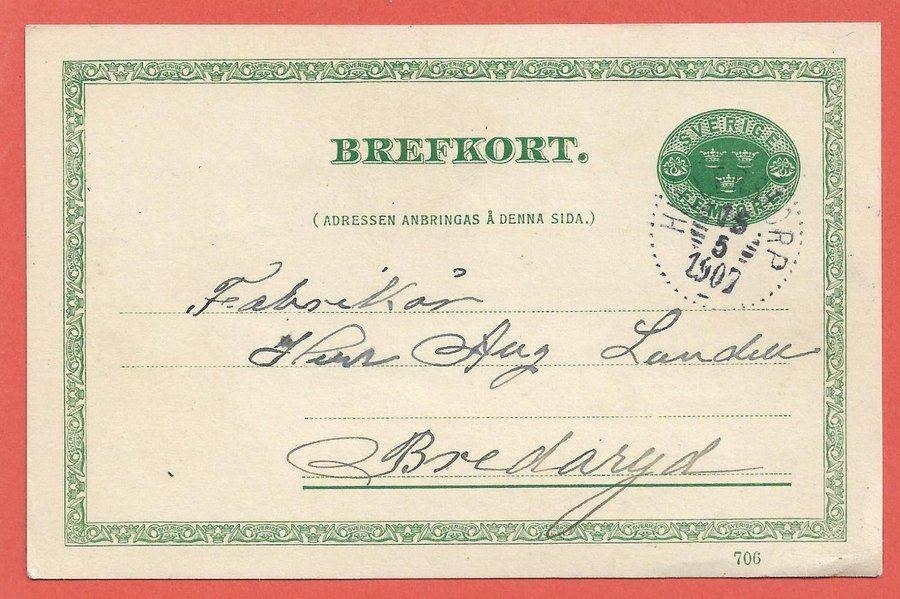 BREFKORT.
SVERIGE
FEM ÖRE
(ADRESSEN ANBRINGAS Å DENNA SIDA.)
18
5
1907
Fabrikör
Herr Aug Lundell
Bredaryd
706